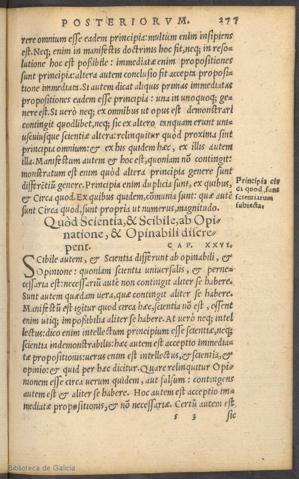 POSTERIORVM. 277
rere omnium esse eadem principia: multum enim insipiens
est. Neq; enim in manifestis doctrinis hoc fit, neq; in reso-
lutione hoc est possibile: immediatæ enim propositiones
sunt principia: altera autem conclusio fit accepta proposi-
tione immediata. Si autem dicat aliquis primas immediatas
propositiones eadem esse principia: una in unoquoq; ge-
nere est. Si uerò neq; ex omnibus ut opus est demonstrari
contingit quodlibet, neq; sic ex altero tanquam erunt uni-
uscuiusque scientiæ altera: relinquitur quòd proxima sint
principia omnium: & ex his quidem hæc, ex illis autem
illa. Manifestum autem & hoc est, quoniam nõ contingit:
monstratum est enim quòd altera principia genere sunt
differẽtiũ genere. Principia enim duplicia sunt, ex quibus,
& Circa quod. Ex quibus quidem, cõmunia sunt: quæ autẽ
sunt Circa quod, sunt propria ut numerus, magnitudo.
Principia cir
ca quod, sunt
scientiarum
subiecta.
Quòd Scientia, & Scibile, ab Opi-
natione, & Opinabili discre-
pent. CAP. XXVI.
Scibile autem, & Scientia differunt ab opinabili, &
Opinione: quoniam scientia uniuersalis, & per ne-
cessaria est: necessariũ autẽ non contingit aliter se habere.
Sunt autem quædam uera, quæ contingit aliter se habere.
Manifestũ est igitur quod circa hæc, scientia nõ est, essent
enim utiq; impossibilia aliter se habere. At uerò neq; intel
lectus: dico enim intellectum principium esse scientiæ, neq;
scientia indemonstrabilis: hæc autem est acceptio immedia-
tæ propositionis: uerus enim est intellectus, & scientia, &
opinio: & quid per hæc dicitur. Quare relinquitur Opi-
nionem esse circa uerum quidem, aut falsum: contingens
autem est & aliter se habere. Hoc autem est acceptio im-
mediatæ propositionis, & nõ necessariæ. Certũ autem est
s 3 sic
Biblioteca de Galicia